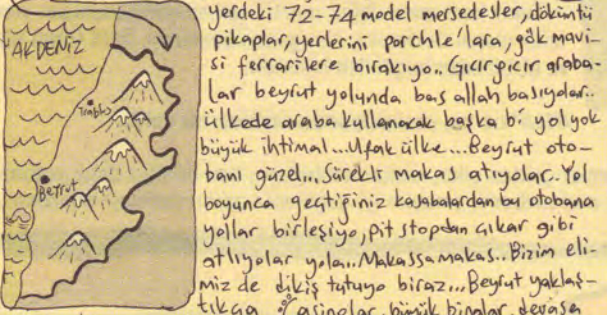 AKDENİZ
Trablus
Beyrut
yerdeki 72-74 model mersedesler, döküntü
pikaplar, yerlerini porchle'lara, gök mavi-
si ferrarilere bırakıyo.. Gıcır gıcır araba-
lar beyrut yolunda bas allah basıyolar..
ülkede araba kullanacak başka bi yol yok
büyük ihtimal... Ufak ülke... Beyrut oto-
banı güzel... Sürekli makas atıyolar.. Yol
boyunca geçtiğiniz kasabalardan bu otobana
yollar birleşiyo, pit stopdan çıkar gibi
atlıyolar yola.. Makassamakas.. Bizim eli-
miz de dikiş tutuyo biraz... Beyrut yaklaş-
tıkça gasinolar, büyük binalar, devasa